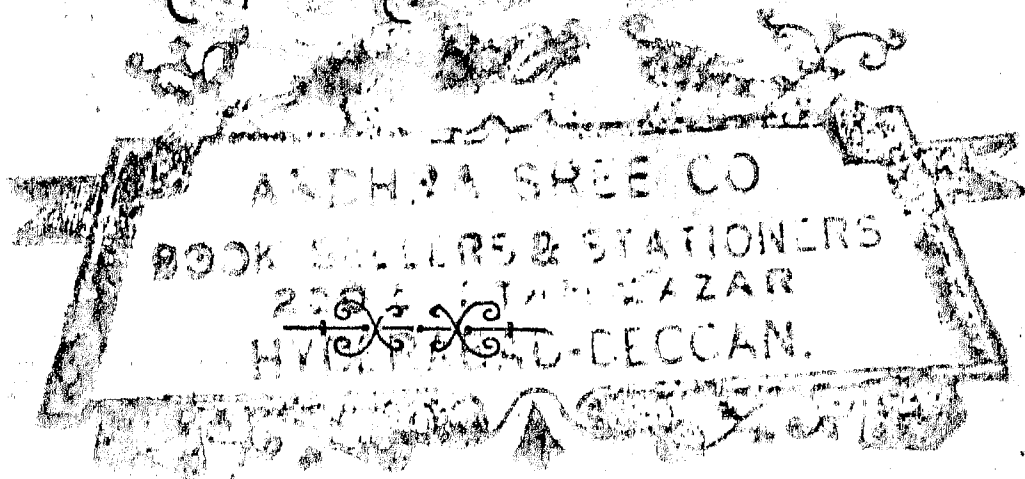 ANDHRA SREE CO
BOOK SELLERS & STATIONERS
BAZAR
HYDERABAD-DECCAN.